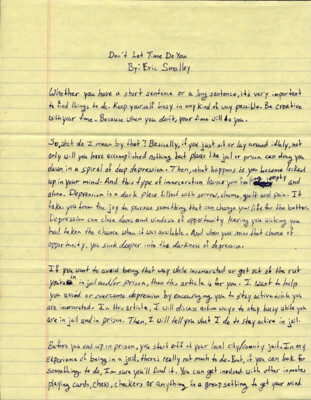 Don't Let Time Do You
By: Eric Smalley
Whether you have a short sentence or a long sentence, it's very important
to find things to do. Keep yourself busy in any kind of way possible. Be creative
with your time. Because when you don't, your time will do you.
So, what do I mean by that? Basically, if you just sit or lay around idly, not
only will you have accomplished nothing, but places like jail or prison can drag you
down in a spiral of deep depression. Then, what happens is you become locked
up in your mind. And this type of incarceration leaves you empty and
alone. Depression is a dark place filled with sorrow, shame, guilt and pain. It
takes you from the joy to pursue something that can change your life for the better.
Depression can close doors and windows of opportunity leaving you wishing you
had taken the chance when it was available. And when you miss that chance of
opportunity, you sink deeper into the darkness of depression.
If you want to avoid being that way while incarcerated or get out of the rut
you're in in jail and/or prison, then this article is for you. I want to help
you avoid or overcome depression by encouraging you to stay active while you
are incarcerated. In this article, I will discuss action ways to stay busy while you
are in jail and in prison. Then, I will tell you what I do to stay active in jail.
Before you end up in prison, you start off at your local city/county jail. In my
experience of being in a jail, there's really not much to do. But, if you can look for
something to do, I'm sure you'll find it. You can get involved with other inmates
playing cards, chess, checkers or anything in a group setting to get your mind